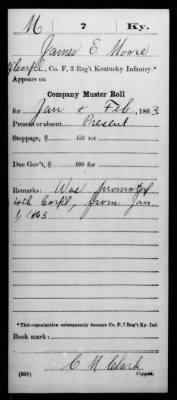 M 7 Ky.
James E Moore
Corp'l, Co. F, 3 Reg't Kentucky Infantry.*
Appears on
Company Muster Roll
for Jan & Feb, 1863
Present or absent Present
Stoppage, $ 100 for
Due Gov't, $ 100 for
Remarks: Was promoted
4th Corp'l, from Jan
1, 1863
*This organization subsequently became Co. F, 7 Reg't Ky. Inf.
Book mark:
(358) C M Clark
Copyist.